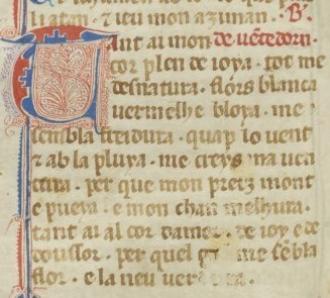 li atan · τ ieu mon aziman · B'.
Tant ai mon de uētedorn.
cor plen de ioya · tot me
desnatura · flors blanca
uermelhe bloya · me
sembla freidura · quap lo uent
τ ab la pluya · me creys ma uen
tura · per que mon pretz mont
e pueya · e mon chan melhura ·
tant ai al cor damor · de ioy e de
doussor · per quel me sēbla
flor · e la neu